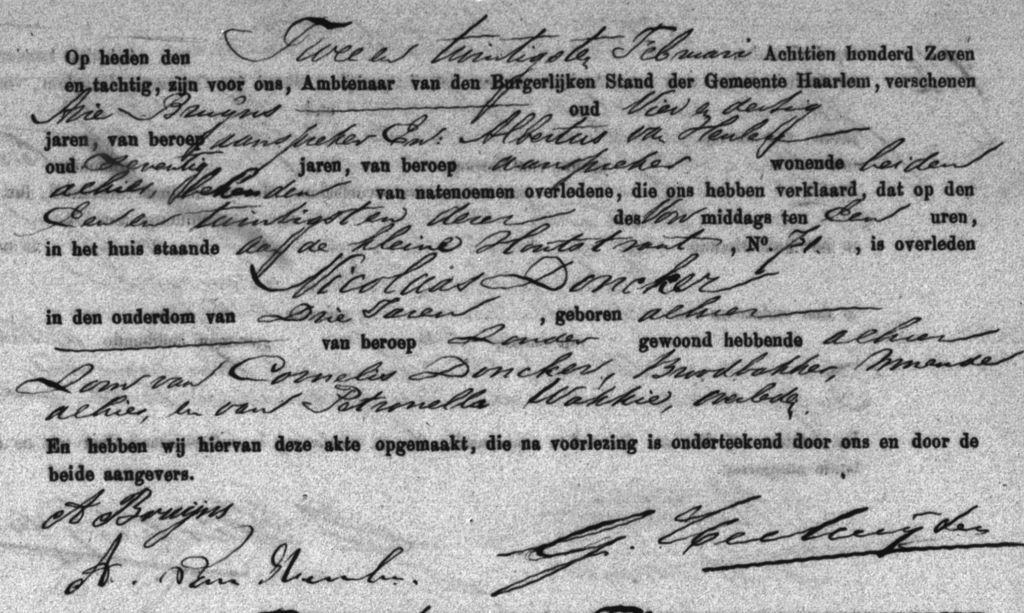 Op heden den Twee en twintigsten Februari Achttien honderd Zeven
en tachtig, zijn voor ons, Ambtenaar van den Burgerlijken Stand der Gemeente Haarlem, verschenen
Arie Bruijns oud Vier en dertig
jaren, van beroep aanspreker En: Albertus van
oud Zeventig jaren, van beroep aanspreker wonende beiden
alhier, bekenden van natenoemen overledene, die ons hebben verklaard, dat op den
Een en twintigsten dezer des Voor middags ten Een uren,
in het huis staande aan de kleine Houtstraat, No. 71., is overleden
Nicolaas Doncker
in den ouderdom van Drie Jaren, geboren alhier
van beroep Zonder gewoond hebbende alhier
Zoon van Cornelis Doncker, Broodbakker, wonende
alhier, en van Petronella Wakkie, overleden.
En hebben wij hiervan deze akte opgemaakt, die na voorlezing is onderteekend door ons en door de
beide aangevers.
A Bruijns
A. van
G.